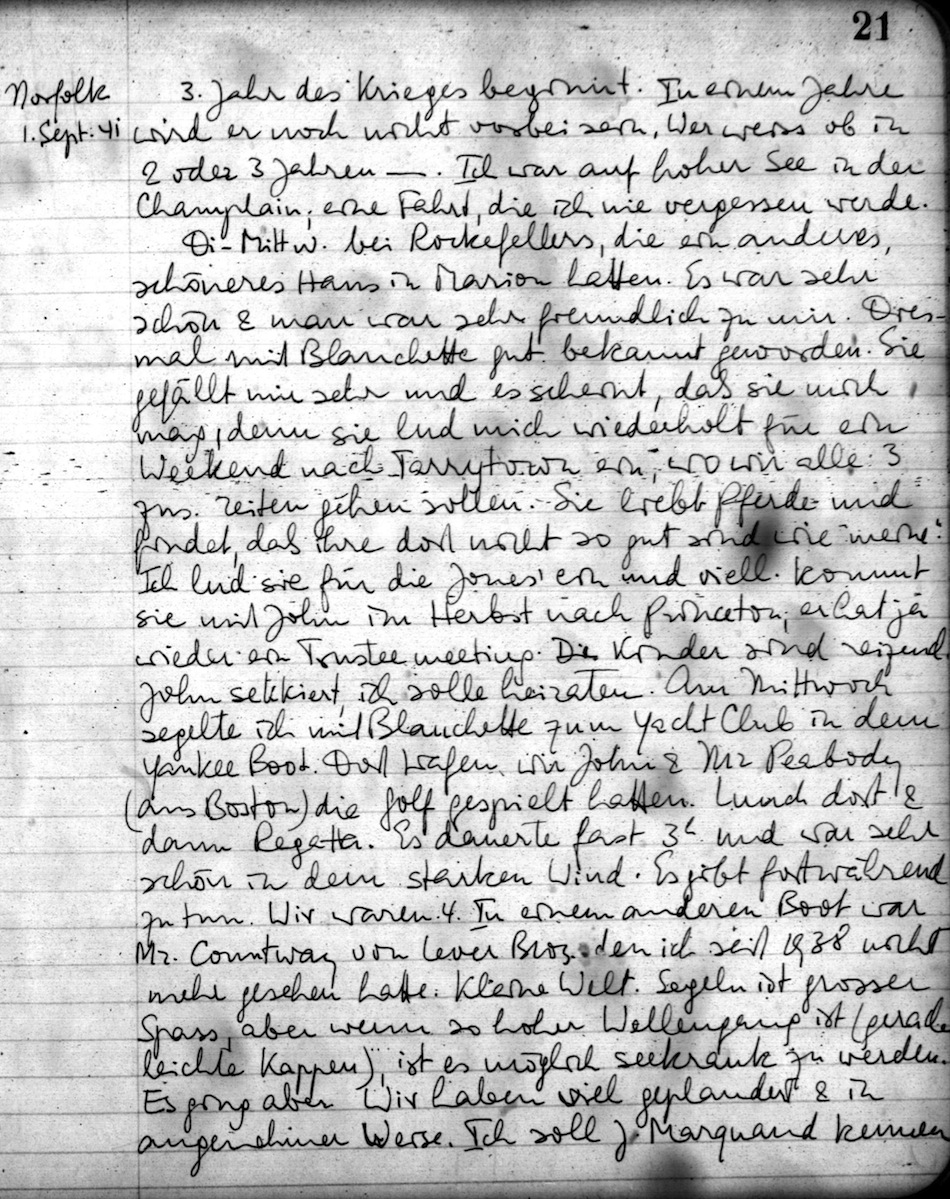 21
Norfolk
1. Sept. 41
3. Jahr des Krieges beginnt. In einem Jahre
wird er noch nicht vorbei sein, Wer weiss ob in
2 oder 3 Jahren —. Ich war auf hoher See in der
Champlain; eine Fahrt, die ich nie vergessen werde.
Di-Mittw. bei Rockefellers, die ein anderes,
schöneres Haus in Marion hatten. Es war sehr
schön & man war sehr freundlich zu mir. Dies-
mal mit Blanchette gut bekannt geworden. Sie
gefällt mir sehr und es scheint, daß sie mich
mag, denn sie lud mich wiederholt für ein
Weekend nach Tarrytown ein, wo wir alle 3
zus. reiten gehen sollen. Sie liebt Pferde und
findet, daß ihre dort nicht so gut sind wie "meine".
Ich lud sie für die Jones' ein und viell. kommt
sie mit John im Herbst nach Princeton, er hat ja
wieder ein Trustee meeting. Die Kinder sind reizend.
John sekkiert, ich solle heiraten. Am Mittwoch
segelte ich mit Blanchette zum Yacht Club in dem
Yankee Boot. Dort trafen wir John & Mr Peabody
(aus Boston) die Golf gespielt hatten. Lunch dort &
dann Regatta. Es dauerte fast 3ʰ und war sehr
schön in dem starken Wind. Es gibt fortwährend
zu tun. Wir waren 4. In einem anderen Boot war
Mr. Countway von Lever Bros. den ich seit 1938 nicht
mehr gesehen hatte. Kleine Welt. Segeln ist grosser
Spass, aber wenn so hoher Wellengang ist (gerade
leichte Kappen), ist es möglich seekrank zu werden.
Es ging aber. Wir haben viel geplaudert & in
angenehmer Weise. Ich soll J. Marquand kennen